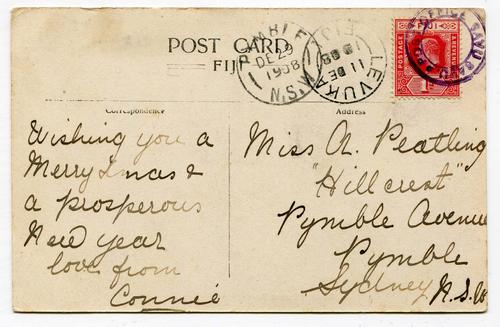 POST CARD
FIJI
PYMBLE
DE 29
1908
N.S.W
LEVUKA
FIJI
11 DE
08
POSTAGE
& REVENUE
POST OFFICE
Correspondence
Address
Wishing you a
Merry Xmas &
a prosperous
New year
love from
Connie
Miss A. Peatling
"Hillcrest"
Pymble Avenue
Pymble
Sydney N.S.W